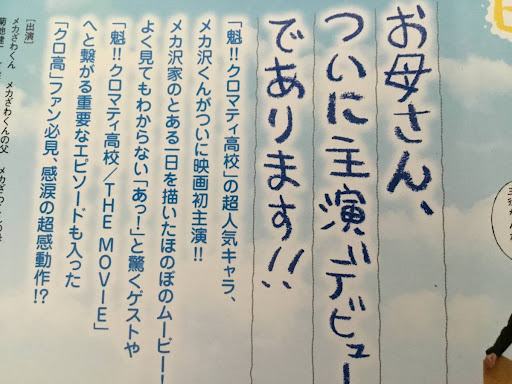 お母さん、
ついに主演デビュー
であります!!
「魁!!クロマティ高校」の超人気キャラ、
メカ沢くんがついに映画初主演!!
メカ沢家のとある一日を描いたほのぼのムービー!
よく見てもわからない「あっ!」と驚くゲストや
「魁!!クロマティ高校/THE MOVIE」
へと繋がる重要なエピソードも入った
「クロ高」ファン必見、感涙の超感動作!?
[出演]
メカざわくん メカざわくんの父